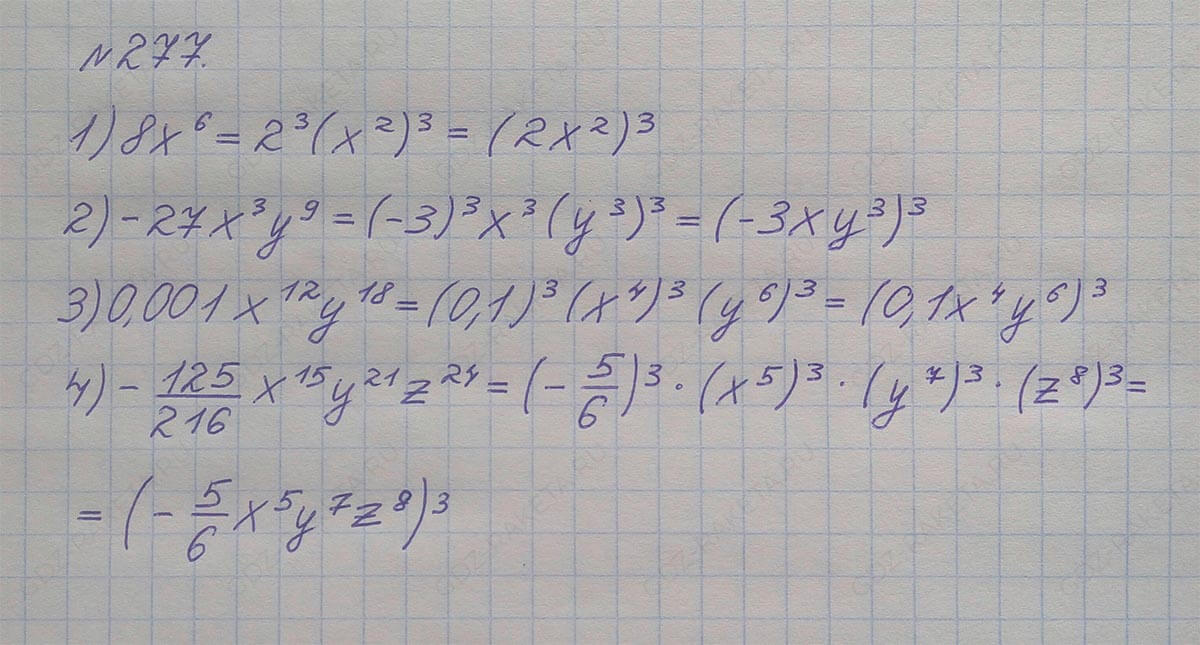 №277.
1) 8x⁶ = 2³(x²)³ = (2x²)³
2) -27x³y⁹ = (-3)³x³(y³)³ = (-3xy³)³
3) 0,001x¹²y¹⁸ = (0,1)³(x⁴)³(y⁶)³ = (0,1x⁴y⁶)³
4) -125/216 x¹⁵y²¹z²⁴ = (-5/6)³·(x⁵)³·(y⁷)³·(z⁸)³ =
= (-5/6 x⁵y⁷z⁸)³